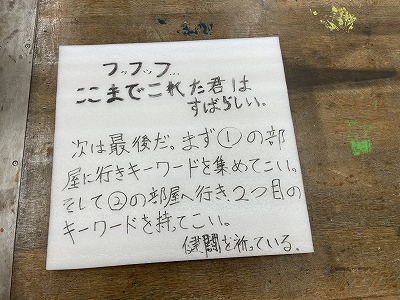 フッフッフ…
ここまでこれた君は
すばらしい。
次は最後だ。まず①の部
屋に行きキーワードを集めてこい。
そして②の部屋へ行き、2つ目の
キーワードを持ってこい。
健闘を祈っている。